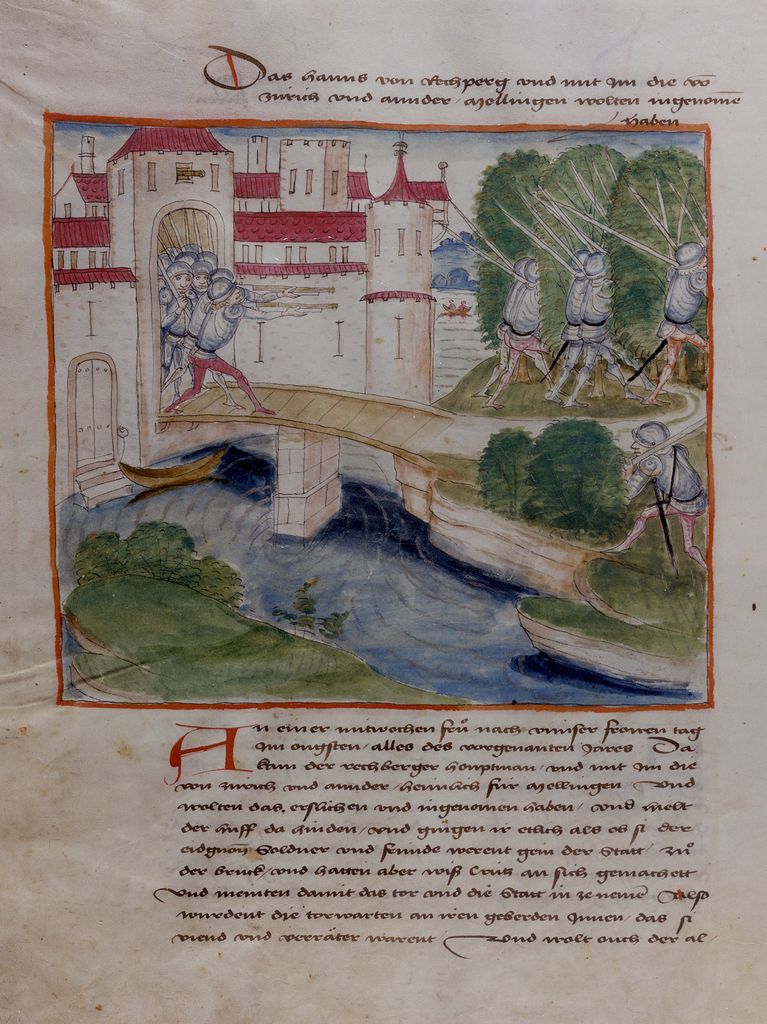 Das hanns von Rechperg vnd mit Im die vō
zürich vnd annder / Mellingen wolten ingenomē
haben
An einer mitwochen frů nach vnnser frowen tag
Im ougsten / alles des vorgenanten Jares Da
kam der rechberger houptman / vnd mit Im die
von zürich vnd annder / heimlich für Mellingen Vnd
wolten das erslichen vnd ingenomen haben / vnd hielt
der huff da hinden / vnd giengen ir etlich als ob si der
eidgnon Soldner vnd frünnde werent gein der Statt / zů
der brück / vnd hatten aber wiß Crütz an sich gemachett
Vnd meinten damit das tor vnd die Statt in ze nemē Also
wurdent die torwarten an iren geberden Innen / das si
viend vnd verräter warent / Vnd wolt ouch der al-